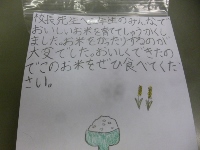 校長先生へ一年生のみんなで
おいしいお米を育てしゅうかくし
ました。お米をかったりするのが
大変でした。おいしくできたの
でこのお米をぜひ食べてくだ
さい。